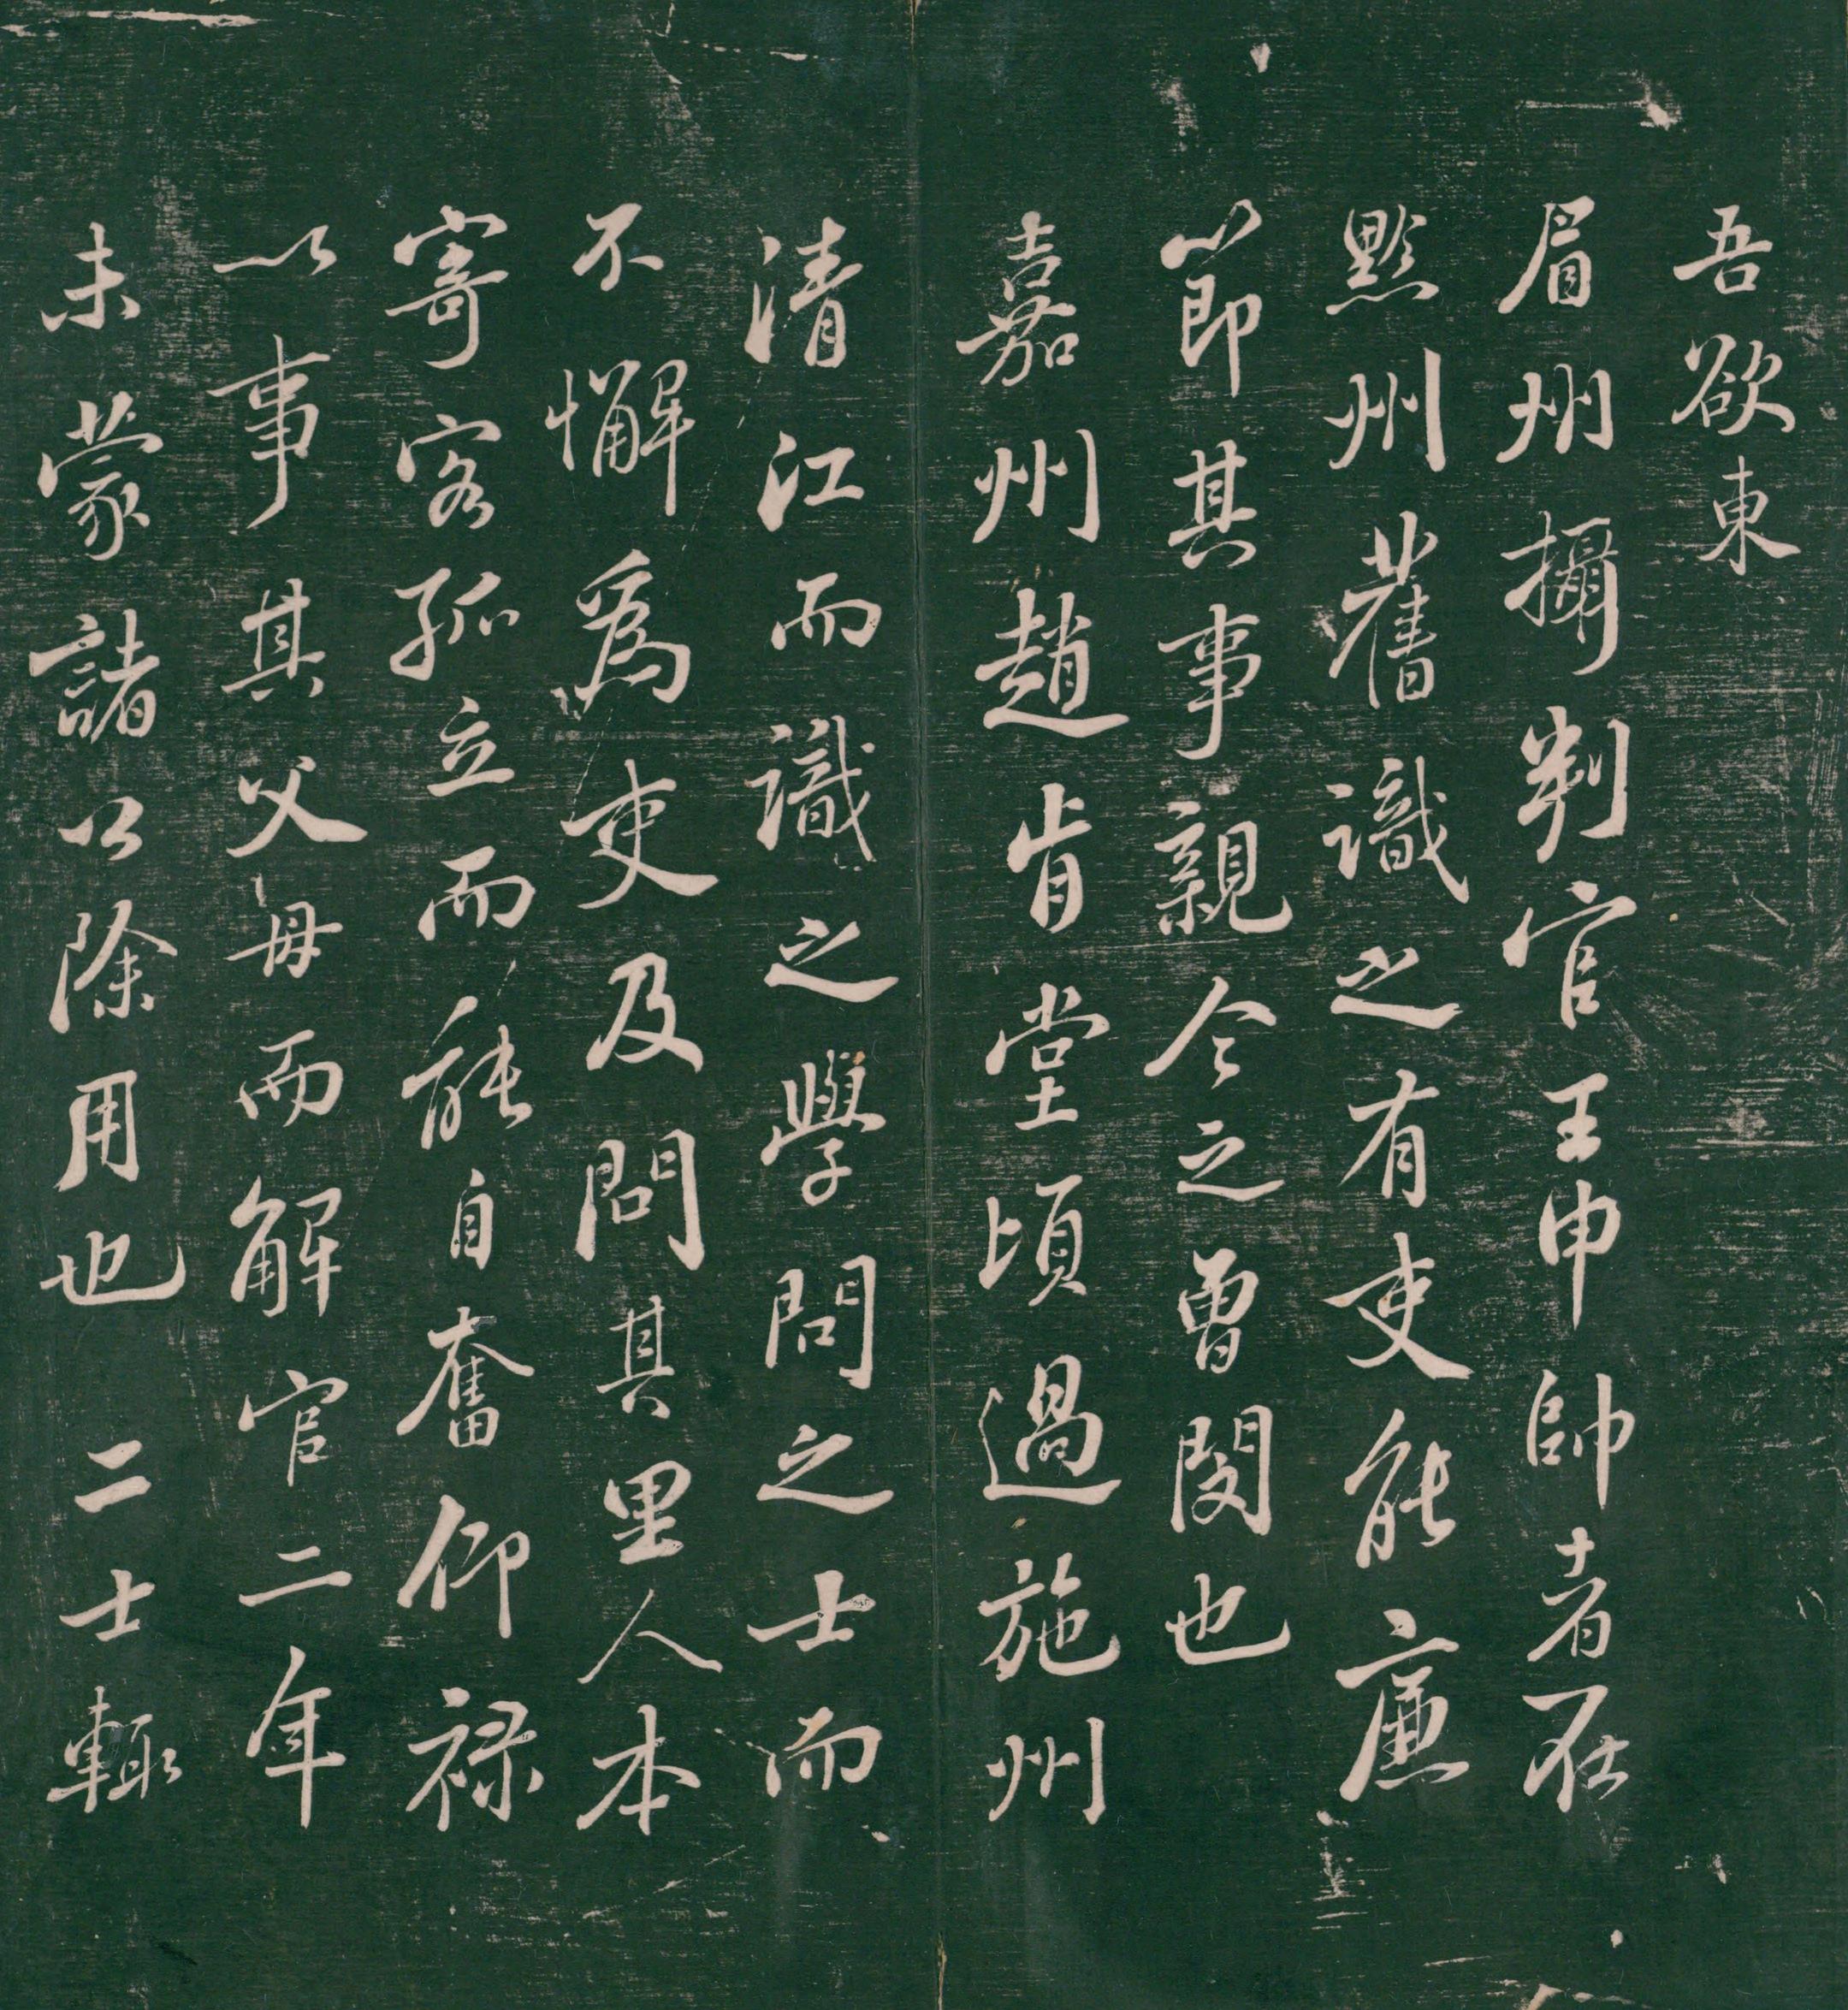 吾欲東
眉州攝判官王申帥者在
黔州舊識之有吏能廉
節其事親今之曾閔也
嘉州趙肯堂頃過施州
清江而識之學問之士而
不懈爲吏及問其里人本
寄客孤立而能自奮仰祿
以事其父母而解官二年
未蒙諸公除用也二士輒